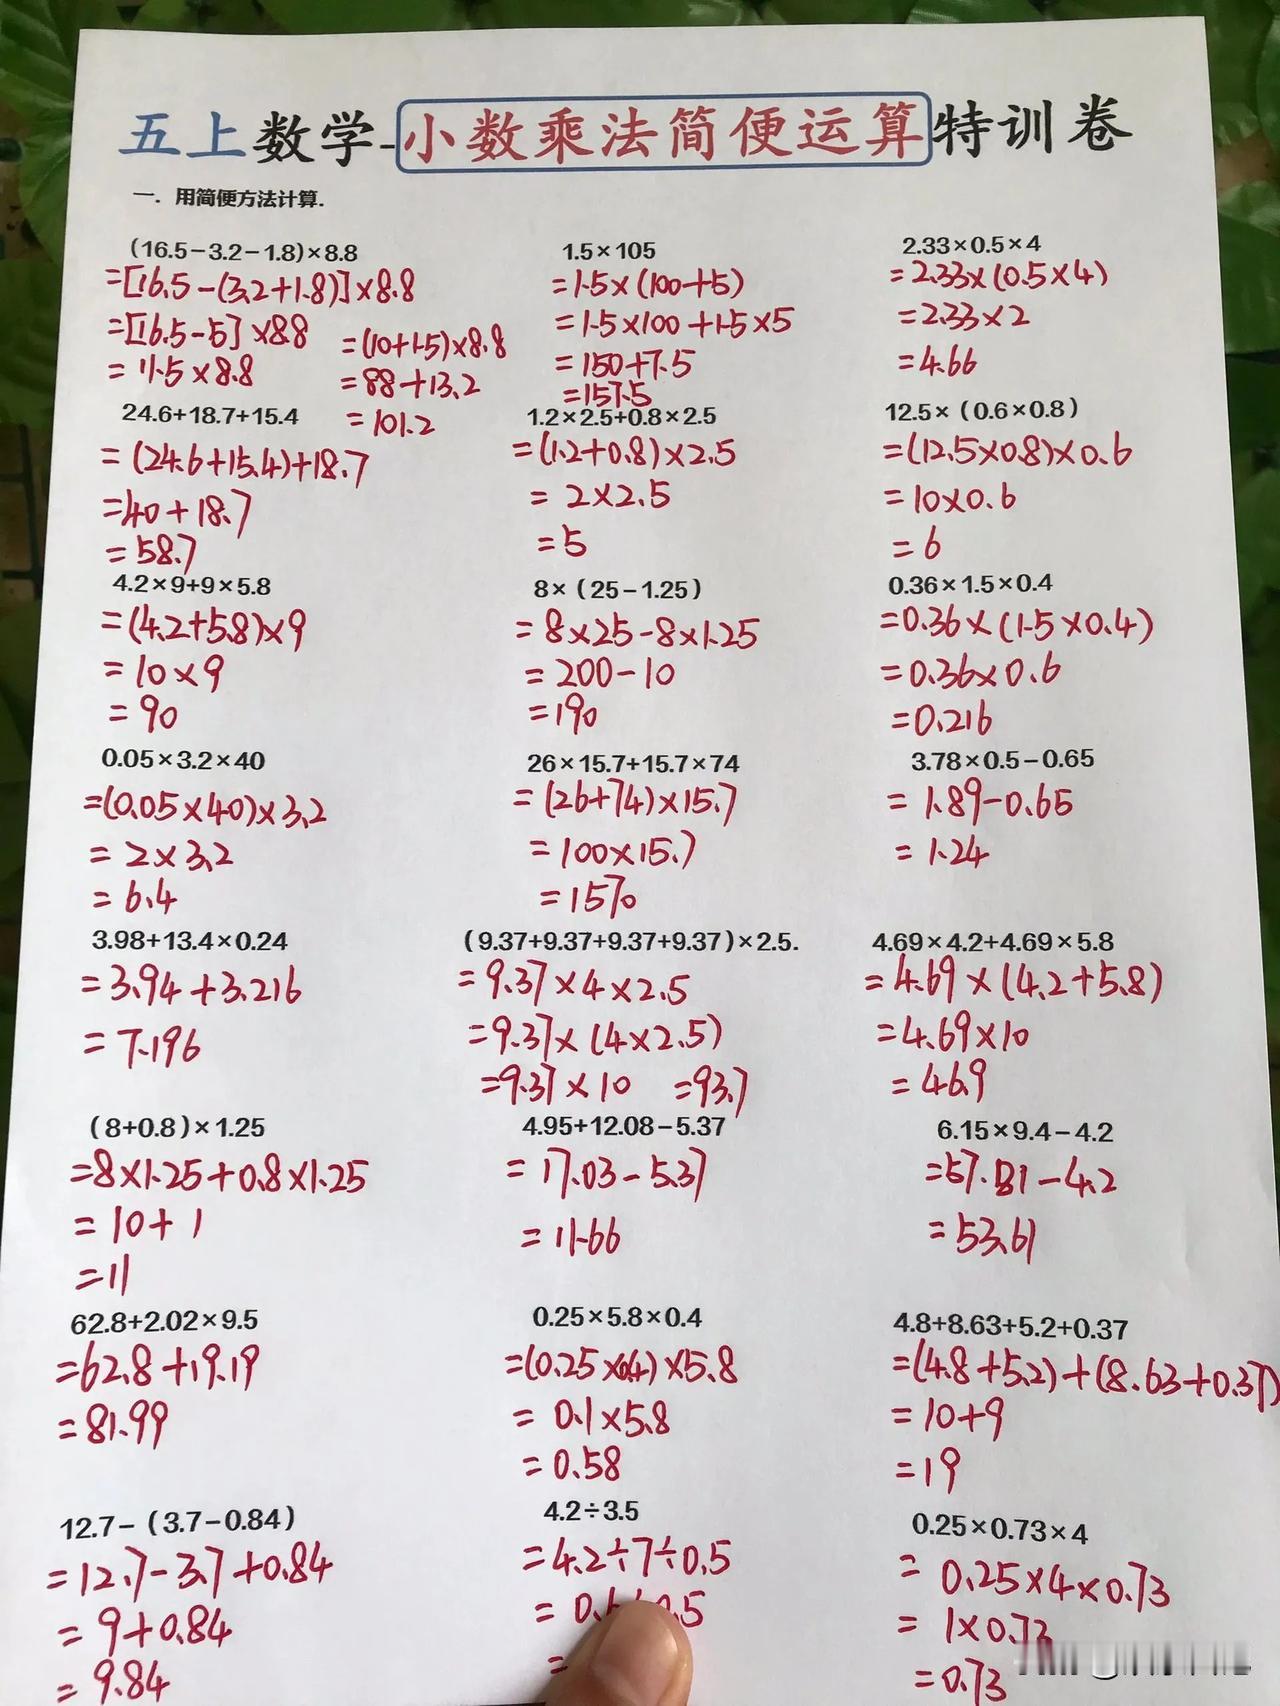 五上数学-小数乘法简便运算特训卷
一. 用简便方法计算.
(16.5-3.2-1.8)×8.8
=[16.5-(3.2+1.8)]×8.8
=[16.5-5]×8.8
=11.5×8.8
=(10+1.5)×8.8
=88+13.2
=101.2
1.5×105
=1.5×(100+5)
=1.5×100+1.5×5
=150+7.5
=157.5
2.33×0.5×4
=2.33×(0.5×4)
=2.33×2
=4.66
24.6+18.7+15.4
=(24.6+15.4)+18.7
=40+18.7
=58.7
1.2×2.5+0.8×2.5
=(1.2+0.8)×2.5
=2×2.5
=5
12.5×(0.6×0.8)
=(12.5×0.8)×0.6
=10×0.6
=6
4.2×9+9×5.8
=(4.2+5.8)×9
=10×9
=90
8×(25-1.25)
=8×25-8×1.25
=200-10
=190
0.36×1.5×0.4
=0.36×(1.5×0.4)
=0.36×0.6
=0.216
0.05×3.2×40
=(0.05×40)×3.2
=2×3.2
=6.4
26×15.7+15.7×74
=(26+74)×15.7
=100×15.7
=1570
3.78×0.5-0.65
=1.89-0.65
=1.24
3.98+13.4×0.24
=3.94+3.216
=7.196
(9.37+9.37+9.37+9.37)×2.5.
=9.37×4×2.5
=9.37×(4×2.5)
=9.37×10 =93.7
4.69×4.2+4.69×5.8
=4.69×(4.2+5.8)
=4.69×10
=46.9
(8+0.8)×1.25
=8×1.25+0.8×1.25
=10+1
=11
4.95+12.08-5.37
=17.03-5.37
=11.66
6.15×9.4-4.2
=57.81-4.2
=53.61
62.8+2.02×9.5
=62.8+19.19
=81.99
0.25×5.8×0.4
=(0.25×0.4)×5.8
=0.1×5.8
=0.58
4.8+8.63+5.2+0.37
=(4.8+5.2)+(8.63+0.37)
=10+9
=19
12.7-(3.7-0.84)
=12.7-3.7+0.84
=9+0.84
=9.84
4.2÷3.5
=4.2÷7÷0.5
=
=
0.25×0.73×4
=0.25×4×0.73
=1×0.73
=0.73